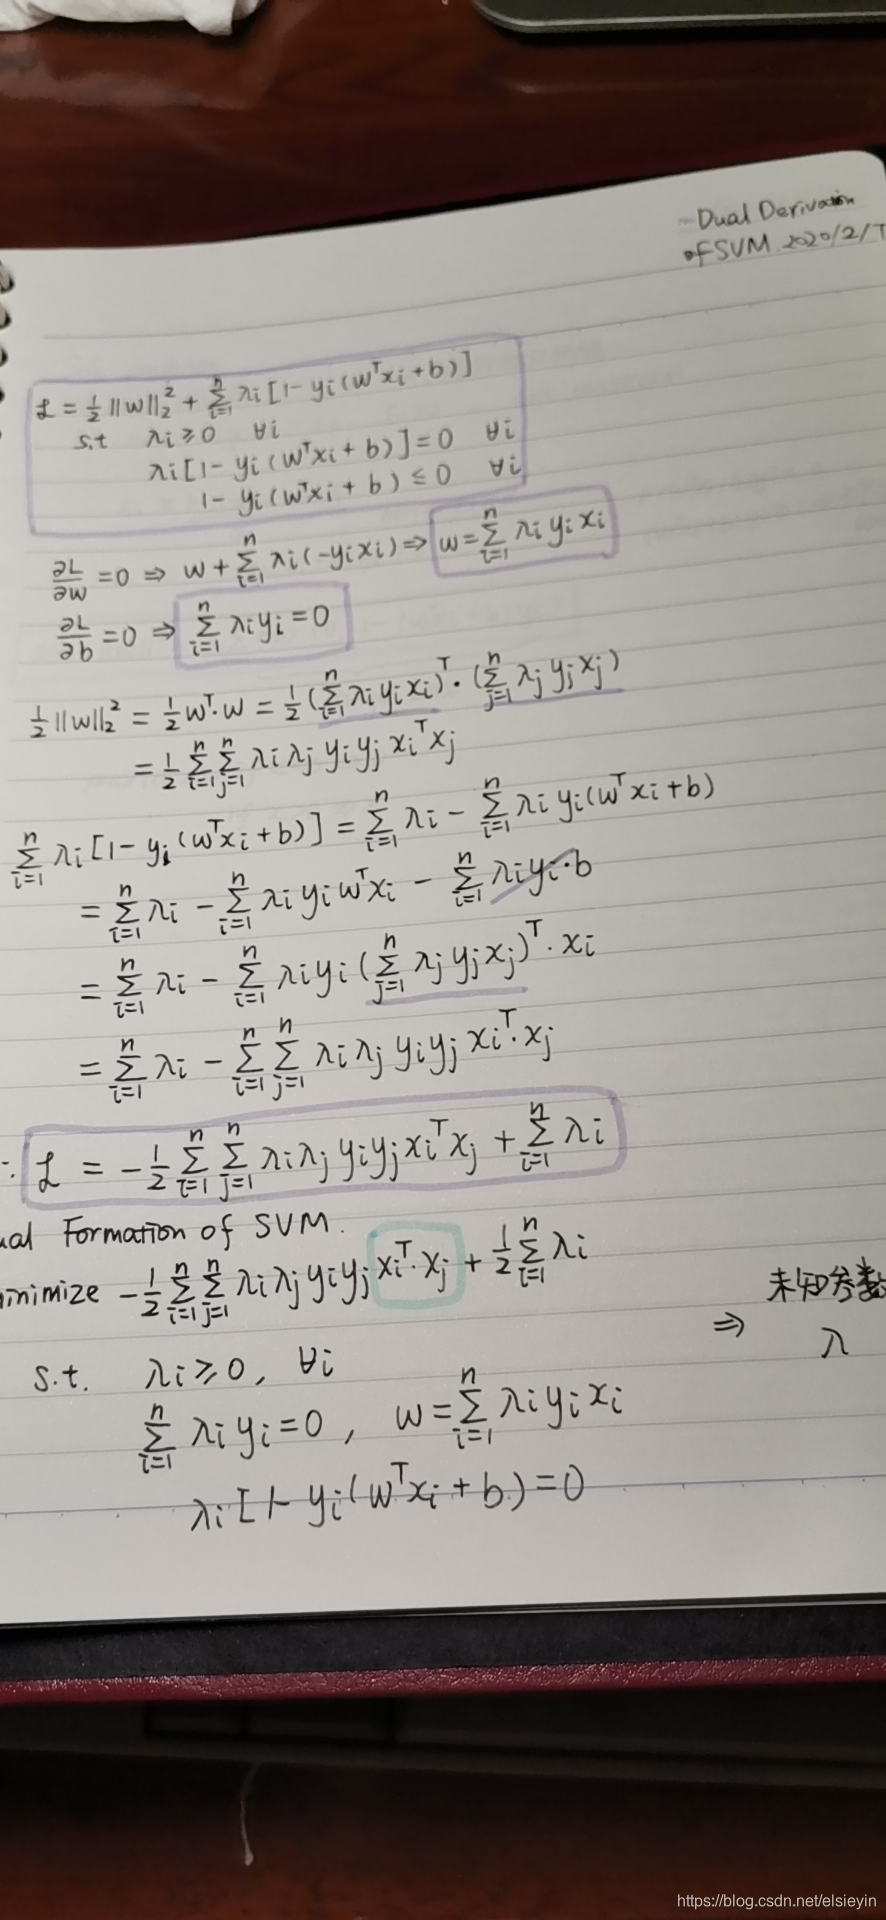 Dual Derivation
of SVM 2020/2/7
ℒ = ½||w||₂² + Σⁿᵢ₌₁ λi [1- yi (wᵀxi + b)]
s.t λi ≥ 0 ∀i
λi [1- yi (wᵀxi + b)] = 0 ∀i
1- yi (wᵀxi + b) ≤ 0 ∀i
∂L/∂w = 0 ⇒ w + Σⁿᵢ₌₁ λi (-yixi) ⇒ w = Σⁿᵢ₌₁ λi yi xi
∂L/∂b = 0 ⇒ Σⁿᵢ₌₁ λi yi = 0
½||w||₂² = ½ wᵀ·w = ½ (Σⁿᵢ₌₁ λi yi xi)ᵀ · (Σⁿⱼ₌₁ λj yj xj)
= ½ Σⁿᵢ₌₁ Σⁿⱼ₌₁ λi λj yi yj xiᵀxj
Σⁿᵢ₌₁ λi [1- yi (wᵀxi + b)] = Σⁿᵢ₌₁ λi - Σⁿᵢ₌₁ λi yi (wᵀxi + b)
= Σⁿᵢ₌₁ λi - Σⁿᵢ₌₁ λi yi wᵀxi - Σⁿᵢ₌₁ λi yi·b
= Σⁿᵢ₌₁ λi - Σⁿᵢ₌₁ λi yi (Σⁿⱼ₌₁ λj yj xj)ᵀ · xi
= Σⁿᵢ₌₁ λi - Σⁿᵢ₌₁ Σⁿⱼ₌₁ λi λj yi yj xiᵀ·xj
ℒ = -½ Σⁿᵢ₌₁ Σⁿⱼ₌₁ λi λj yi yj xiᵀxj + Σⁿᵢ₌₁ λi
ual Formation of SVM.
inimize -½ Σⁿᵢ₌₁ Σⁿⱼ₌₁ λi λj yi yj xiᵀ·xj + ½ Σⁿᵢ₌₁ λi
⇒ 未知参数
λ
s.t. λi ≥ 0, ∀i
Σⁿᵢ₌₁ λi yi = 0, w = Σⁿᵢ₌₁ λi yi xi
λi [1- yi (wᵀxi + b) = 0
https://blog.csdn.net/elsieyin